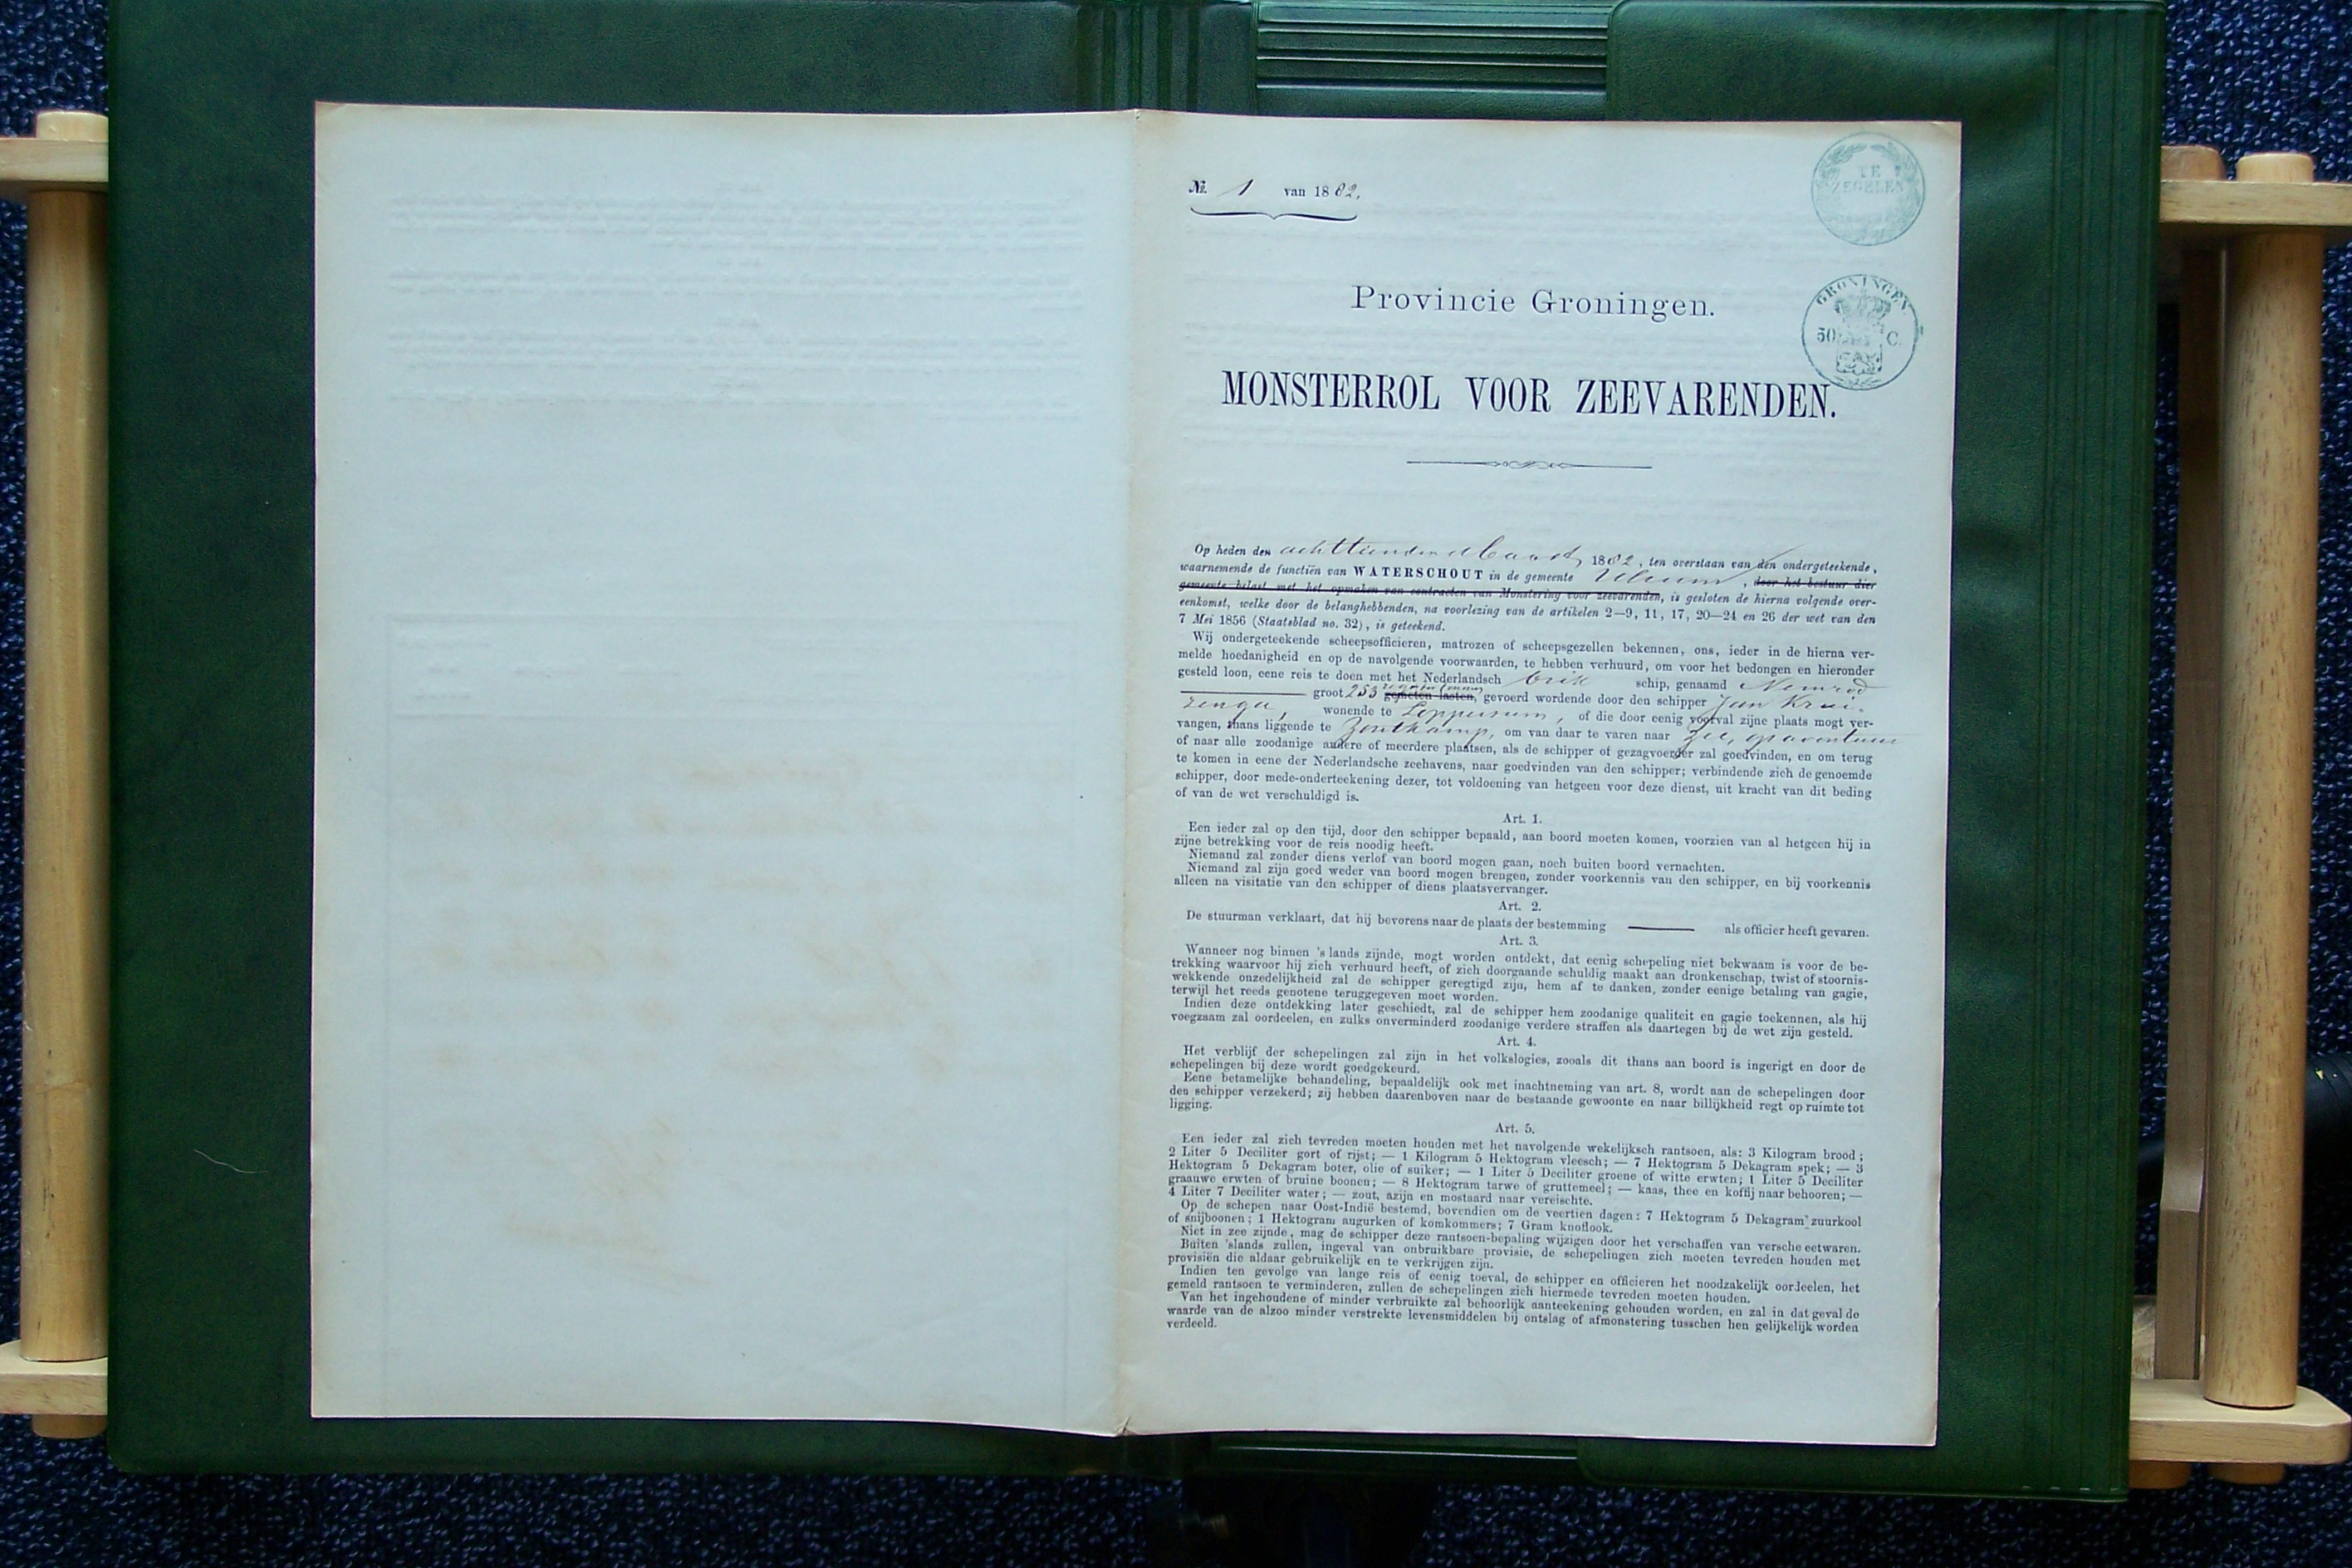 No. 1 van 1882.
TE
ZEGELEN
Provincie Groningen.
GRONINGEN
50 C.
MONSTERROL VOOR ZEEVARENDEN.
Op heden den achttienden Maart 1882, ten overstaan van den ondergeteekende,
waarnemende de functiën van WATERSCHOUT in de gemeente Ulrum, door het bestuur dier
gemeente belast met het opmaken van contracten van Monstering voor zeevarenden, is gesloten de hierna volgende over-
eenkomst, welke door de belanghebbenden, na voorlezing van de artikelen 2—9, 11, 17, 20—24 en 26 der wet van den
7 Mei 1856 (Staatsblad no. 32), is geteekend.
Wij ondergeteekende scheepsofficieren, matrozen of scheepsgezellen bekennen, ons, ieder in de hierna ver-
melde hoedanigheid en op de navolgende voorwaarden, te hebben verhuurd, om voor het bedongen en hieronder
gesteld loon, eene reis te doen met het Nederlandsch brik schip, genaamd Nemrod
groot 253 gemeten lasten, gevoerd wordende door den schipper Jan Krui-
zenga, wonende te Loppersum, of die door eenig voorval zijne plaats mogt ver-
vangen, thans liggende te Zoutkamp, om van daar te varen naar Zee, op avontuur
of naar alle zoodanige andere of meerdere plaatsen, als de schipper of gezagvoerder zal goedvinden, en om terug
te komen in eene der Nederlandsche zeehavens, naar goedvinden van den schipper; verbindende zich de genoemde
schipper, door mede-onderteekening dezer, tot voldoening van hetgeen voor deze dienst, uit kracht van dit beding
of van de wet verschuldigd is.
Art. 1.
Een ieder zal op den tijd, door den schipper bepaald, aan boord moeten komen, voorzien van al hetgeen hij in
zijne betrekking voor de reis noodig heeft.
Niemand zal zonder diens verlof van boord mogen gaan, noch buiten boord vernachten.
Niemand zal zijn goed weder van boord mogen brengen, zonder voorkennis van den schipper, en bij voorkennis
alleen na visitatie van den schipper of diens plaatsvervanger.
Art. 2.
De stuurman verklaart, dat hij bevorens naar de plaats der bestemming als officier heeft gevaren.
Art. 3.
Wanneer nog binnen 's lands zijnde, mogt worden ontdekt, dat eenig schepeling niet bekwaam is voor de be-
trekking waarvoor hij zich verhuurd heeft, of zich doorgaande schuldig maakt aan dronkenschap, twist of stoornis-
wekkende onzedelijkheid zal de schipper geregtigd zijn, hem af te danken, zonder eenige betaling van gagie,
terwijl het reeds genotene teruggegeven moet worden.
Indien deze ontdekking later geschiedt, zal de schipper hem zoodanige qualiteit en gagie toekennen, als hij
voegzaam zal oordeelen, en zulks onverminderd zoodanige verdere straffen als daartegen bij de wet zijn gesteld.
Art. 4.
Het verblijf der schepelingen zal zijn in het volkslogies, zooals dit thans aan boord is ingerigt en door de
schepelingen bij deze wordt goedgekeurd.
Eene betamelijke behandeling, bepaaldelijk ook met inachtneming van art. 8, wordt aan de schepelingen door
den schipper verzekerd; zij hebben daarenboven naar de bestaande gewoonte en naar billijkheid regt op ruimte tot
ligging.
Art. 5.
Een ieder zal zich tevreden moeten houden met het navolgende wekelijksch rantsoen, als: 3 Kilogram brood;
2 Liter 5 Deciliter gort of rijst; — 1 Kilogram 5 Hektogram vleesch; — 7 Hektogram 5 Dekagram spek; — 3
Hektogram 5 Dekagram boter, olie of suiker; — 1 Liter 5 Deciliter groene of witte erwten; 1 Liter 5 Deciliter
graauwe erwten of bruine boonen; — 8 Hektogram tarwe of gruttemeel; — kaas, thee en koffij naar behooren; —
4 Liter 7 Deciliter water; — zout, azijn en mostaard naar vereischte.
Op de schepen naar Oost-Indië bestemd, bovendien om de veertien dagen: 7 Hektogram 5 Dekagram zuurkool
of snijboonen; 1 Hektogram augurken of komkommers; 7 Gram knoflook.
Niet in zee zijnde, mag de schipper deze rantsoen-bepaling wijzigen door het verschaffen van versche eetwaren.
Buiten 'slands zullen, ingeval van onbruikbare provisie, de schepelingen zich moeten tevreden houden met
provisiën die aldaar gebruikelijk en te verkrijgen zijn.
Indien ten gevolge van lange reis of eenig toeval, de schipper en officieren het noodzakelijk oordeelen, het
gemeld rantsoen te verminderen, zullen de schepelingen zich hiermede tevreden moeten houden.
Van het ingehoudene of minder verbruikte zal behoorlijk aanteekening gehouden worden, en zal in dat geval de
waarde van de alzoo minder verstrekte levensmiddelen bij ontslag of afmonstering tusschen hen gelijkelijk worden
verdeeld.